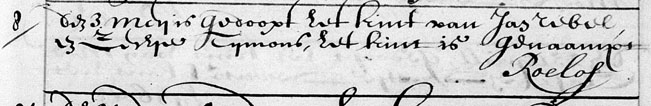 8 den 3 meij is gedoopt het kint van Jan rebel,
en Tijmons, het kint is genaampt
Roelof